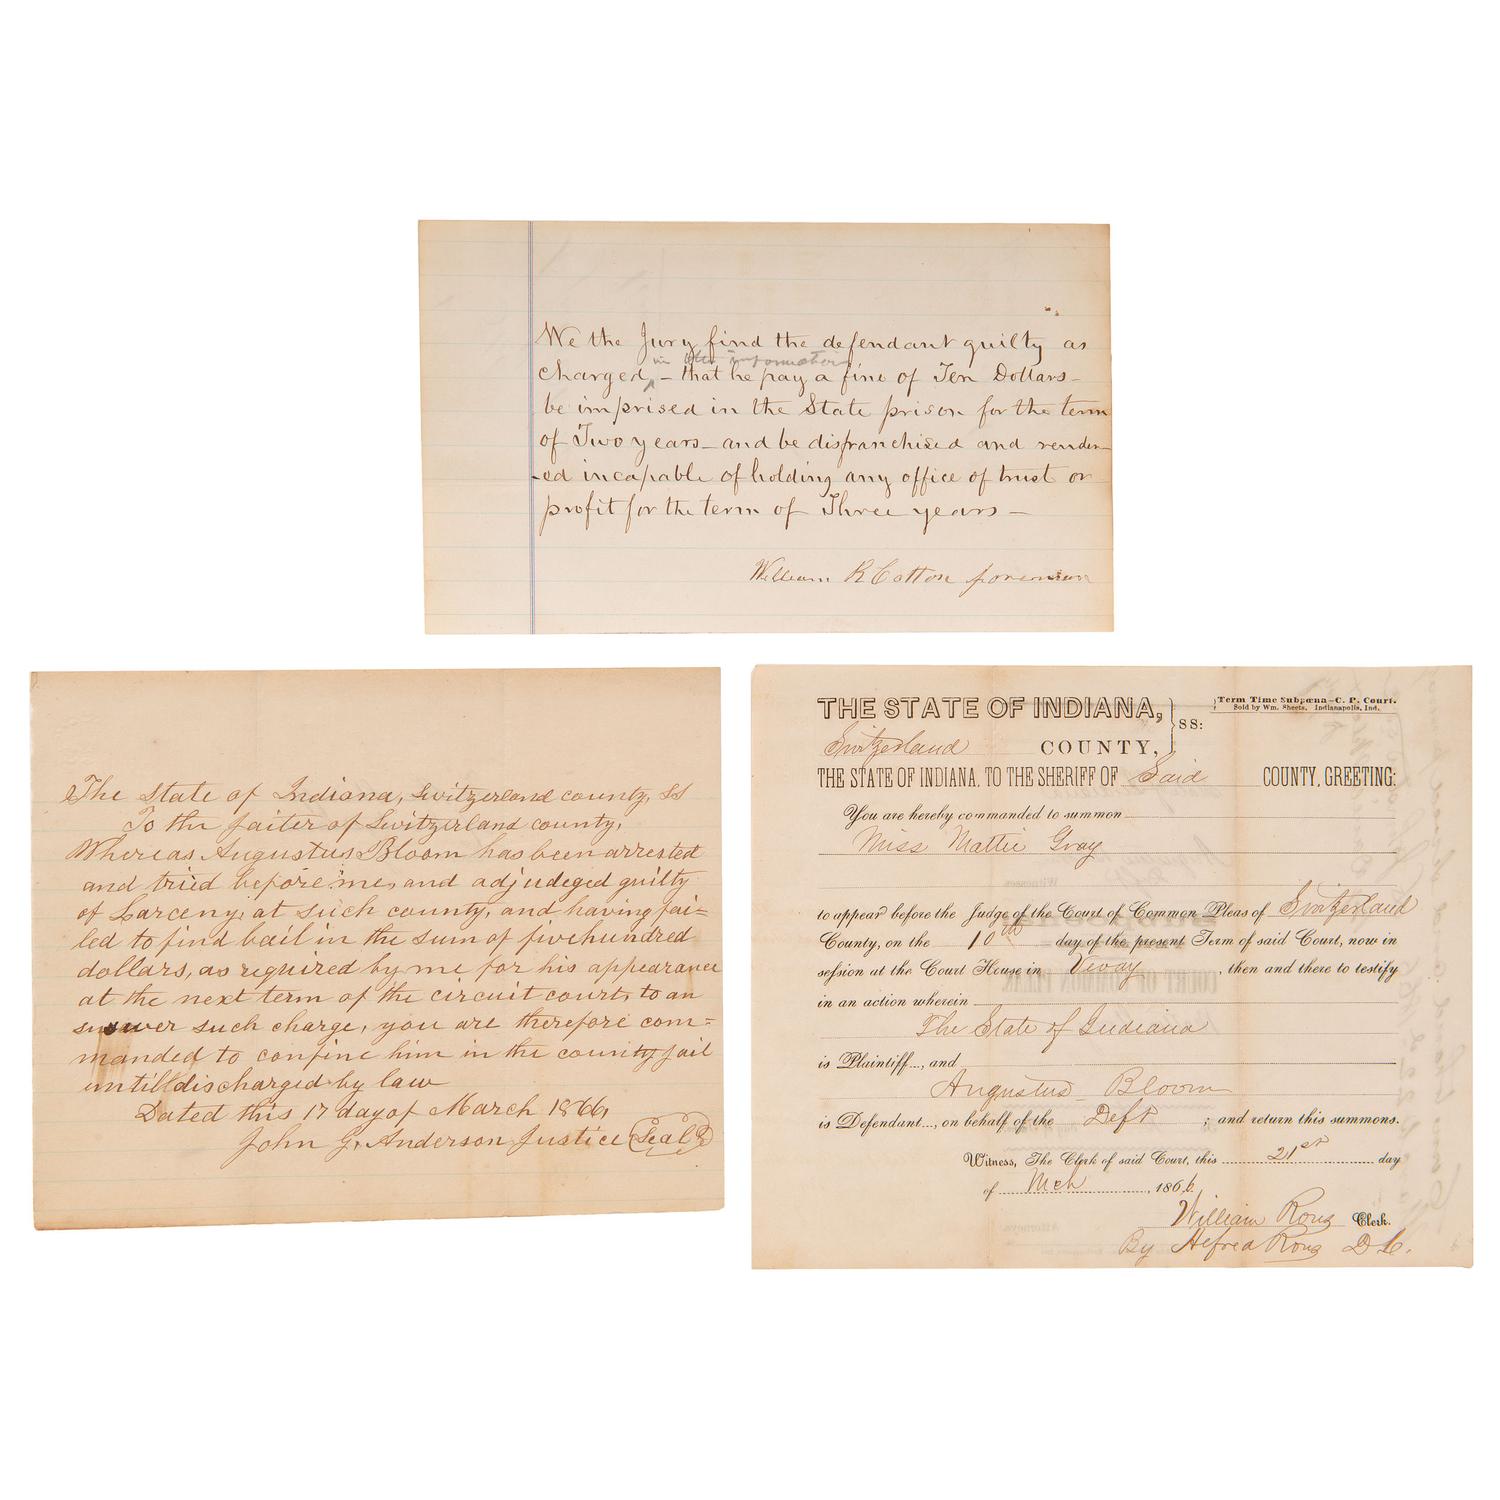 We the Jury find the defendant guilty as
in the information
charged, – that he pay a fine of Ten Dollars –
be imprised in the State prison for the term
of Two years – and be disfranchised and render-
-ed incapable of holding any office of trust or
profit for the term of Three years –
William R Cotton foreman
The State of Indiana, Switzerland county, SS
To the jailer of Switzerland county,
Whereas Augustus Bloom has been arrested
and tried before me, and adjudeged guilty
of Larceny, at such county, and having fai=
led to find bail in the sum of fivehundred
dollars, as required by me for his appearance
at the next term of the circuit court, to an
swower such charge, you are therefore com=
manded to confine him in the county jail
untill discharged by law
Dated this 17 day of March 1866,
John G. Anderson Justice (Seal)
THE STATE OF INDIANA, } SS:
Term Time Subpœna–C. P. Court.
Sold by Wm. Sheets, Indianapolis, Ind.
Switzerland COUNTY,
THE STATE OF INDIANA, TO THE SHERIFF OF Said COUNTY, GREETING:
You are hereby commanded to summon
Miss Mattie Gray
to appear before the Judge of the Court of Common Pleas of Switzerland
County, on the 10th day of the present Term of said Court, now in
session at the Court House in Vevay, then and there to testify
in an action wherein
The State of Indiana
is Plaintiff..., and
Augustus Bloom
is Defendant..., on behalf of the Deft ; and return this summons.
Witness, The Clerk of said Court, this 21st day
of Mch, 1866.
William Rous Clerk.
By Alfred Rous D C.